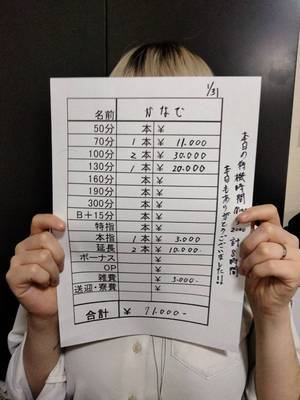 1/31
名前 かなで
50分 本 ¥
70分 1本 ¥ 11.000
100分 2本 ¥ 30.000
130分 1本 ¥ 20.000
160分 本 ¥
190分 本 ¥
300分 本 ¥
B+15分 本 ¥
特指 本 ¥
本指 1本 ¥ 3.000
延長 2本 ¥ 10.000
ボーナス ¥
OP ¥
雑費 ¥ 3.000-
送迎・寮費 ¥
合計 ¥ 71.000-
本日の待機時間 計8時間
本日もありがとうございました!!